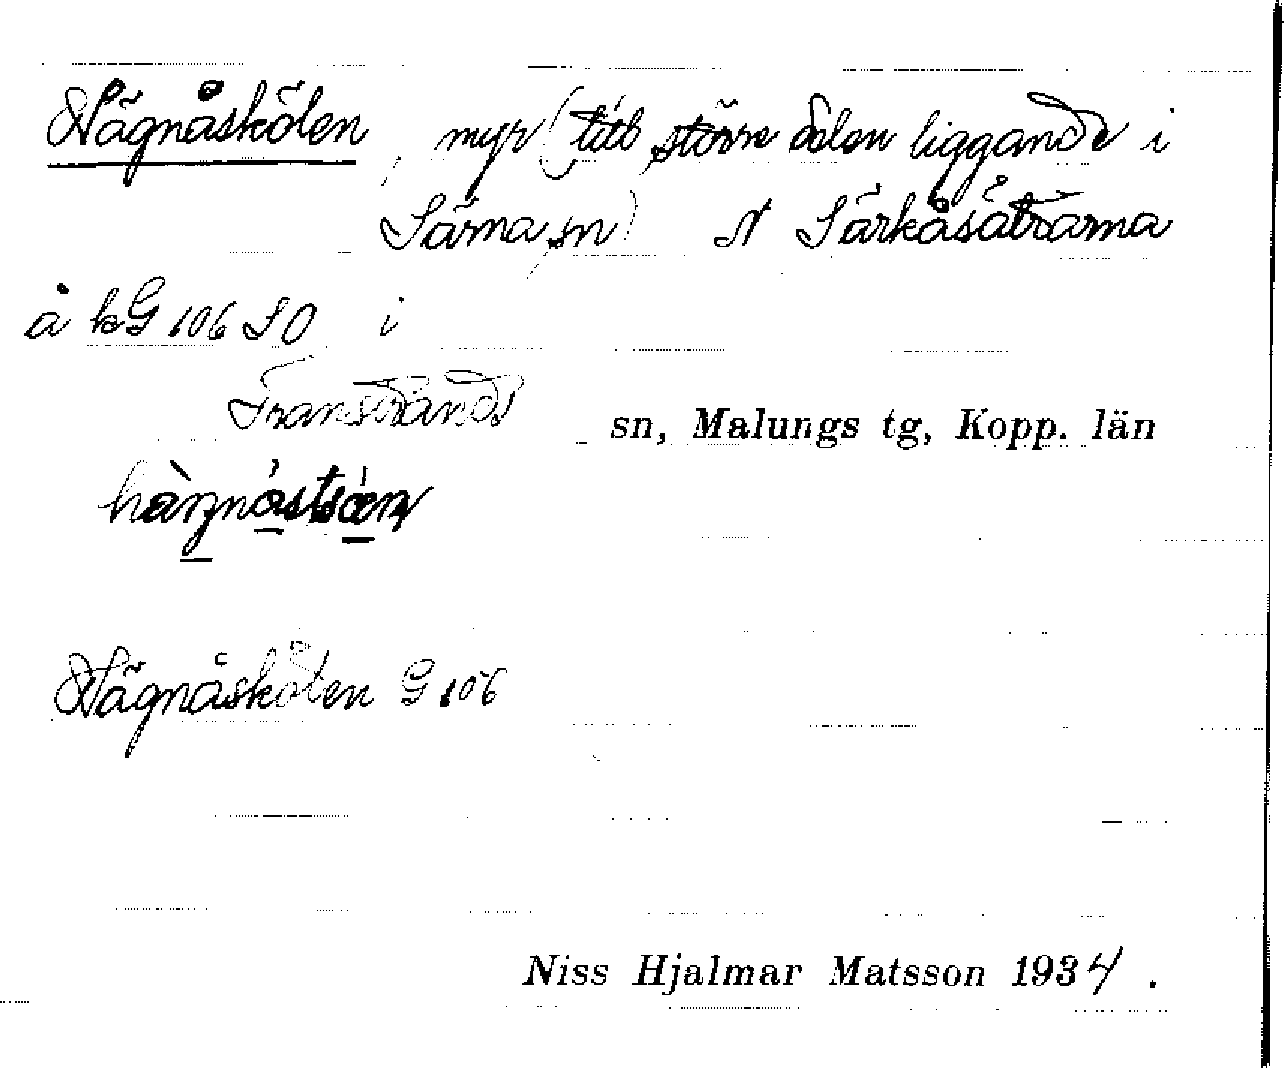 Hägnåskölen, myr (till större delen liggande i
Särna sn) N Särkåsätrarna
å kG 106 SO i
Transtrands sn, Malungs tg, Kopp. län
Hägnåskölen G 106
Niss Hjalmar Matsson 1934.